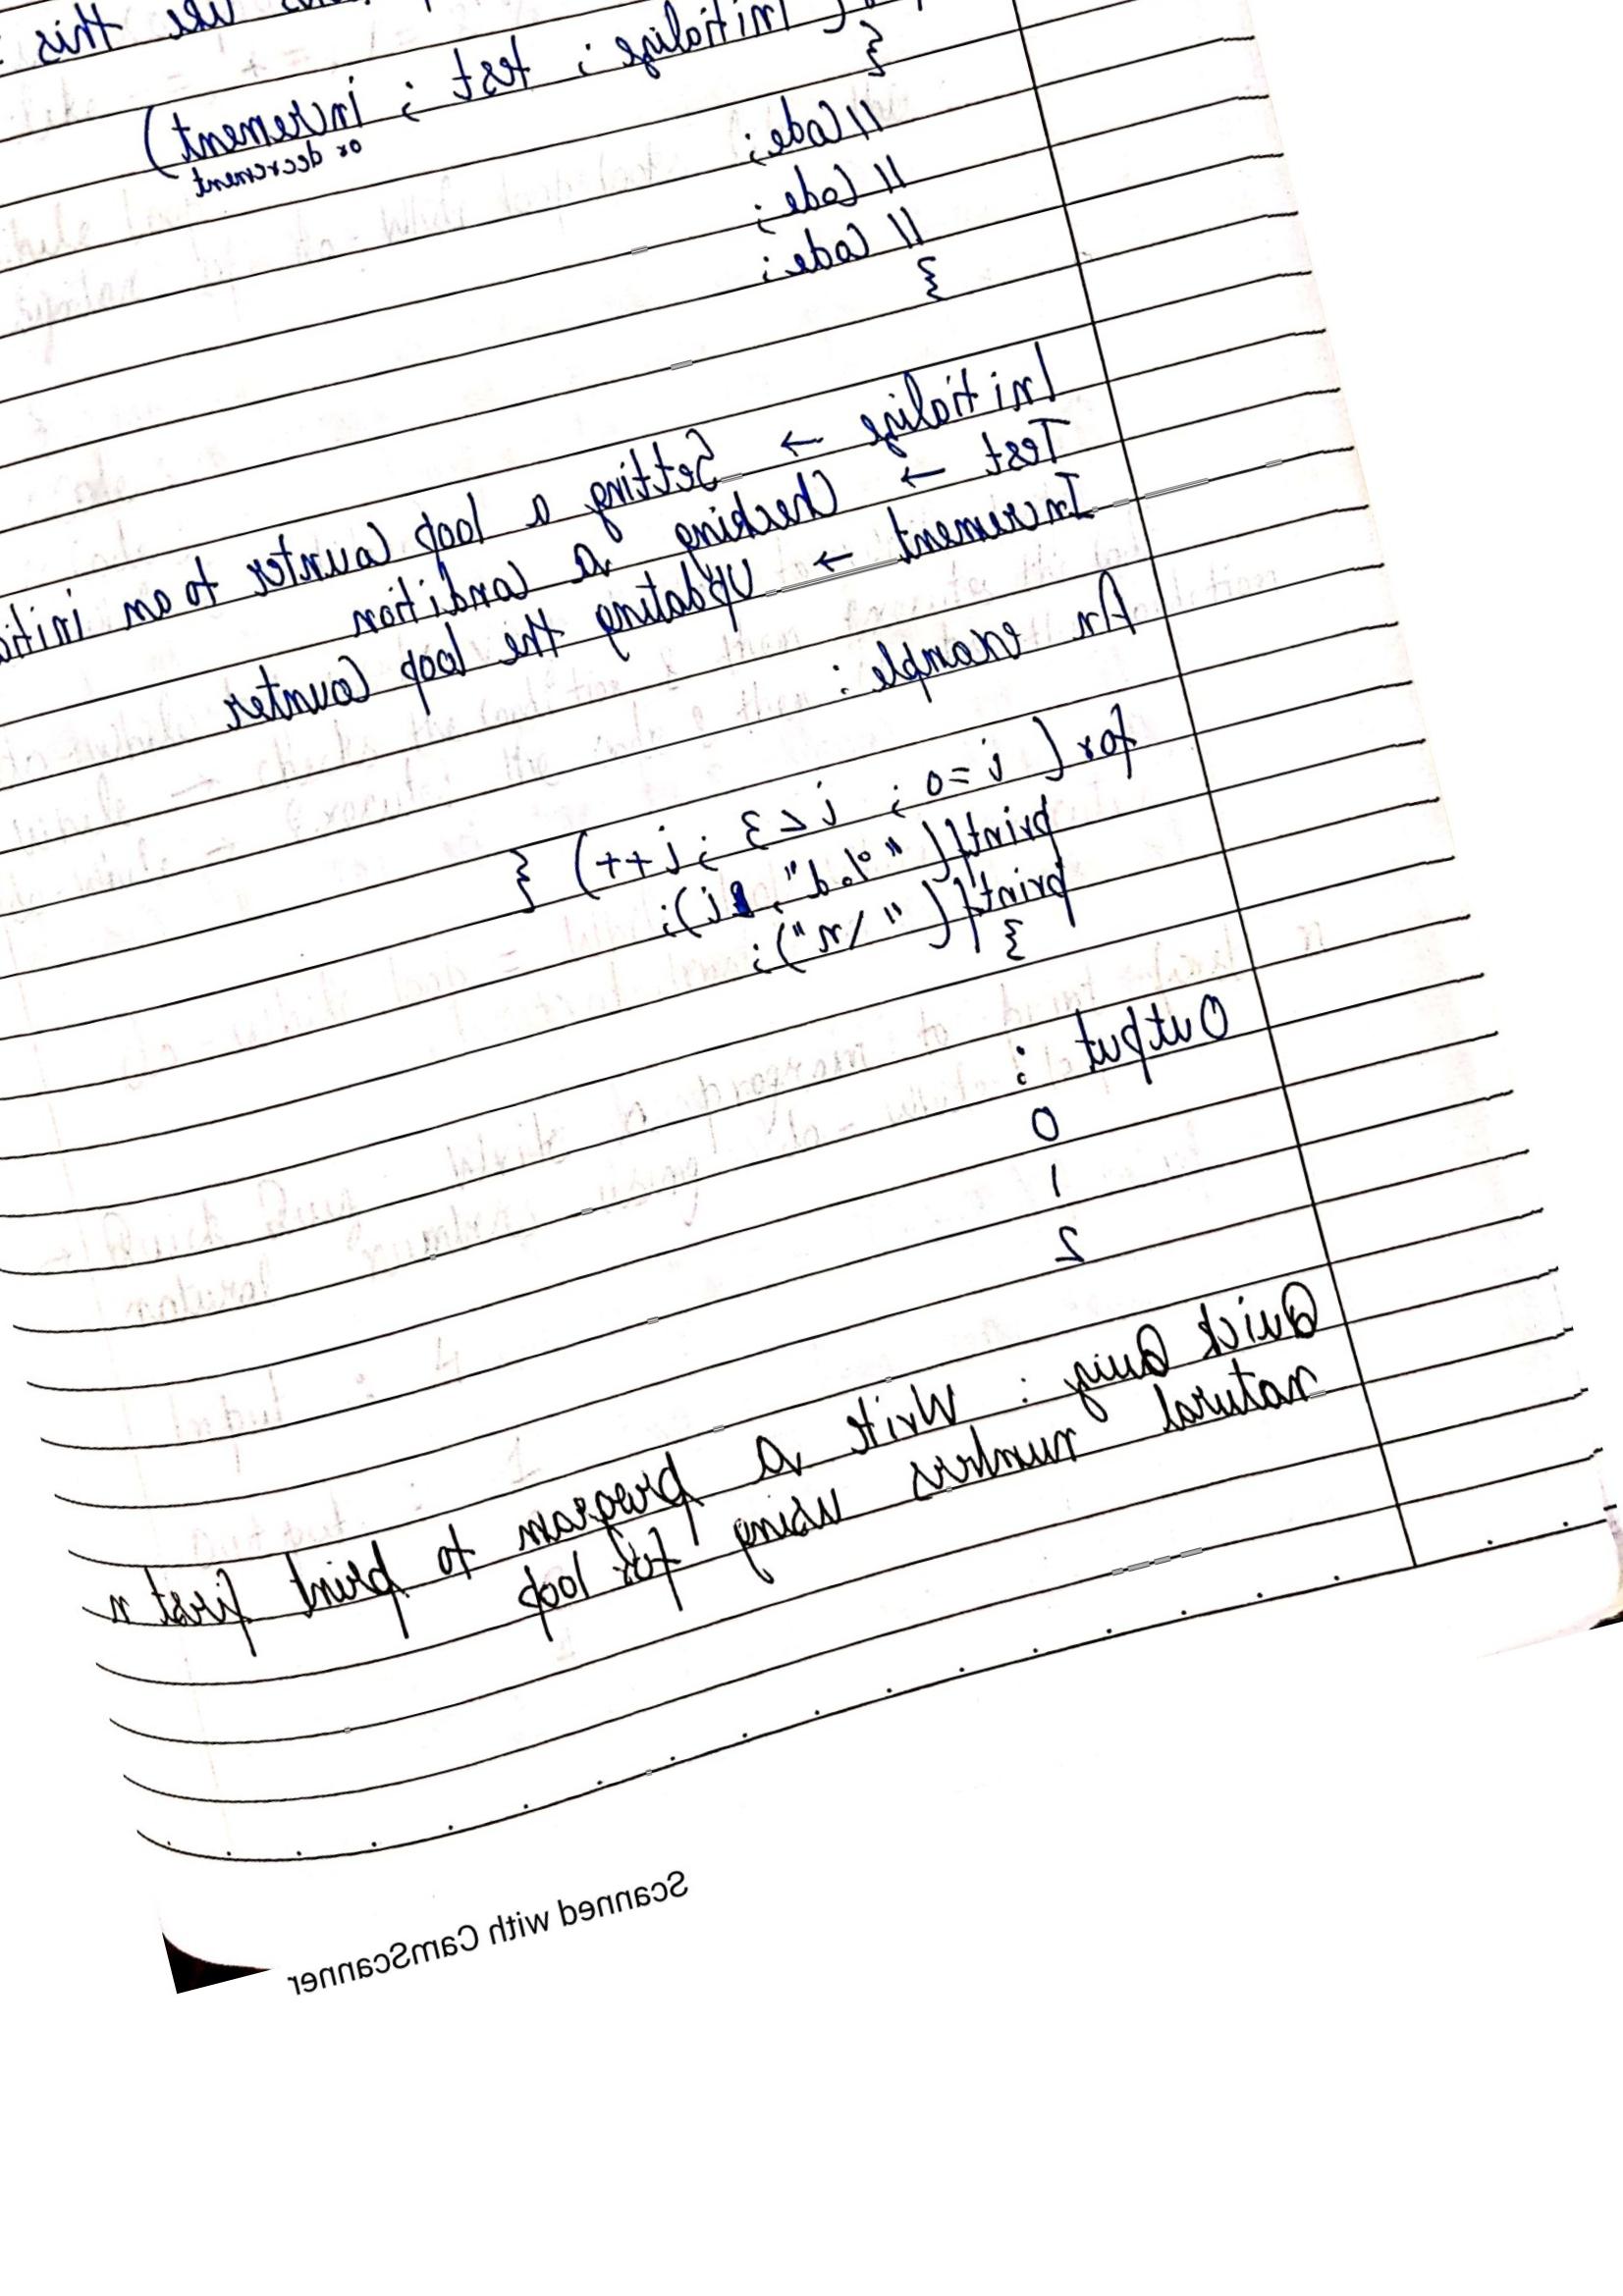 like this
( Initialize ; test ; increment )
or decrement
{
// Code ;
// Code ;
// Code ;
}
Initialize → Setting a loop counter to an initi
Test → Checking a condition
Increment → Updating the loop counter
An example :
for ( i = 0 ; i < 3 ; i++ ) {
printf( "%d", i );
printf( "\n" );
}
Output :
0
1
2
Quick Quiz : Write a program to print first n
natural numbers using for loop
Scanned with CamScanner